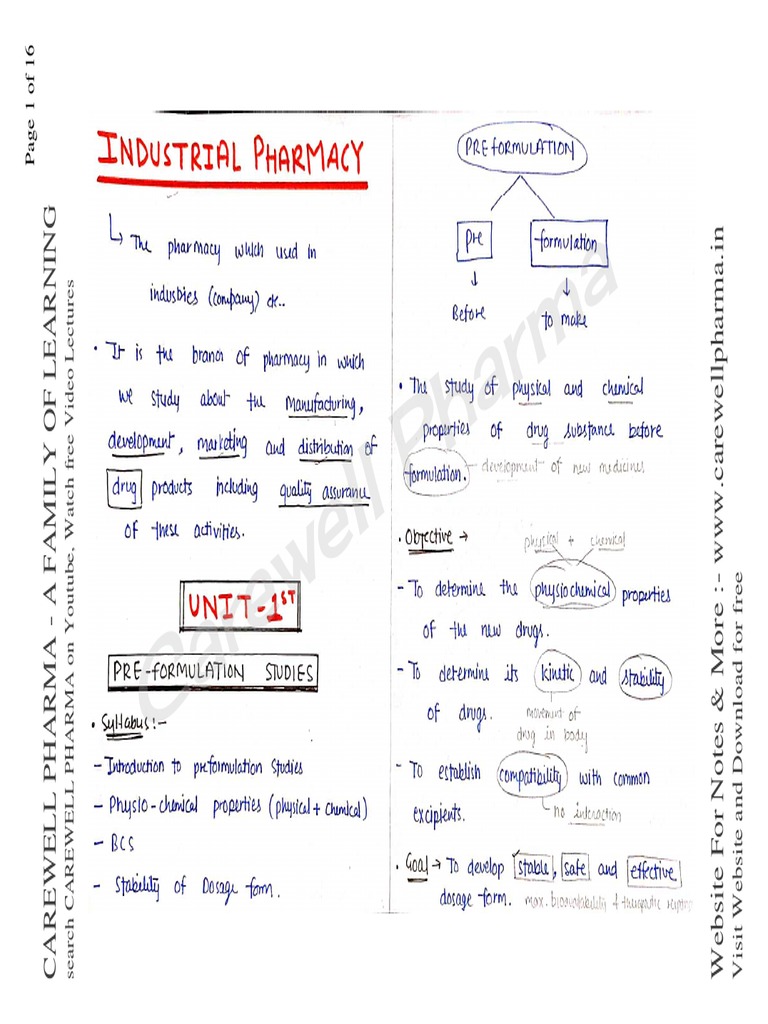 Page 1 of 16
CAREWELL PHARMA - A FAMILY OF LEARNING
search CAREWELL PHARMA on Youtube, Watch free Video Lectures
INDUSTRIAL PHARMACY
↳ The pharmacy which used in
industries (company) etc..
• It is the branch of pharmacy in which
we study about the manufacturing,
development, marketing and distribution of
drug products including quality assurance
of these activities.
UNIT-1ST
PRE-FORMULATION STUDIES
• Syllabus:-
- Introduction to preformulation studies
- Physio-chemical properties (physical + chemical)
- BCS
- Stability of Dosage form.
PREFORMULATION
Pre
formulation
↓
↓
Before
to make
• The study of physical and chemical
properties of drug substance before
formulation. - development of new medicines
• Objective →
physical + chemical
- To determine the physiochemical properties
of the new drugs.
- To determine its kinetic and stability
of drugs.
movement of
drug in body
- To establish compatibility with common
excipients.
no interaction
• Goal → To develop stable, safe and effective
dosage form. max. bioavailability &
Carewell Pharma
Website For Notes & More :- www.carewellpharma.in
Visit Website and Download for free